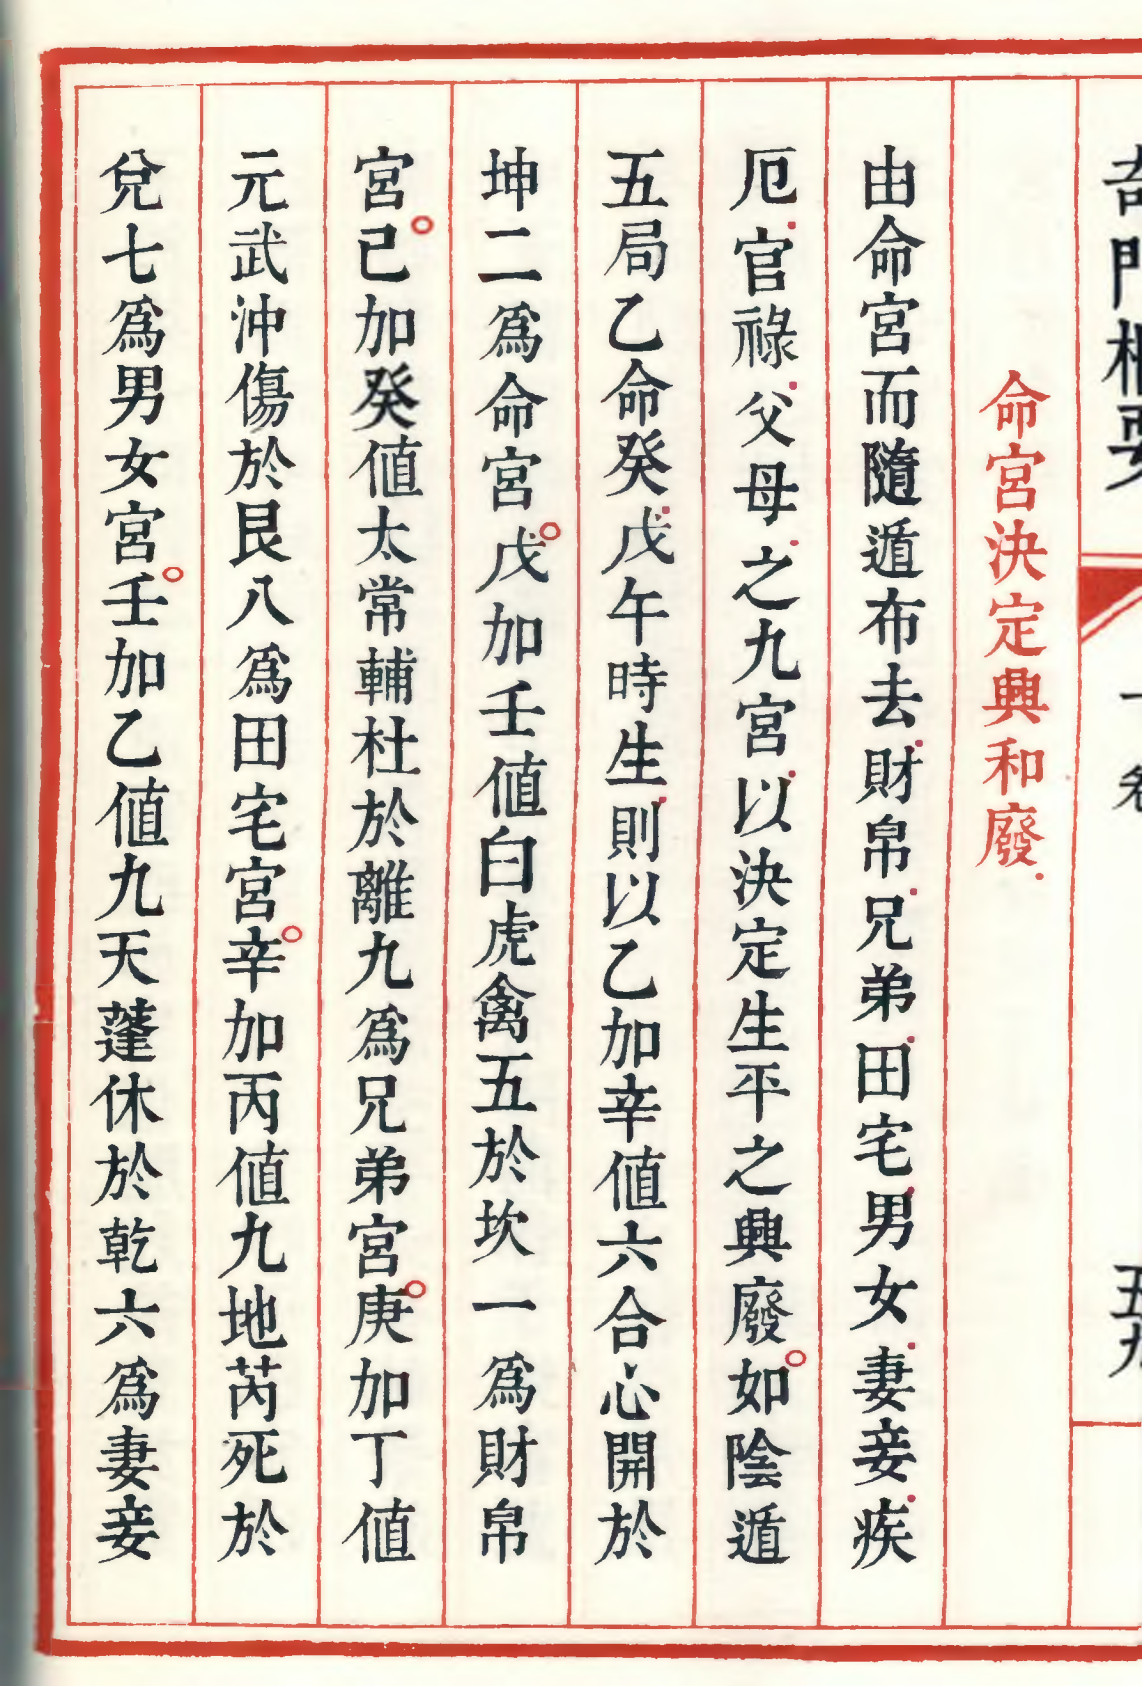 命宮決定興和廢
由命宮而隨遁布去財帛兄弟田宅男女妻妾疾
厄官祿父母之九宮以決定生平之興廢如陰遁
五局乙命癸戊午時生則以乙加辛值六合心開於
坤二為命宮戊加壬值白虎禽五於坎一為財帛
宮己加癸值太常輔杜於離九為兄弟宮庚加丁值
元武沖傷於艮八為田宅宮辛加丙值九地芮死於
兌七為男女宮壬加乙值九天蓬休於乾六為妻妾